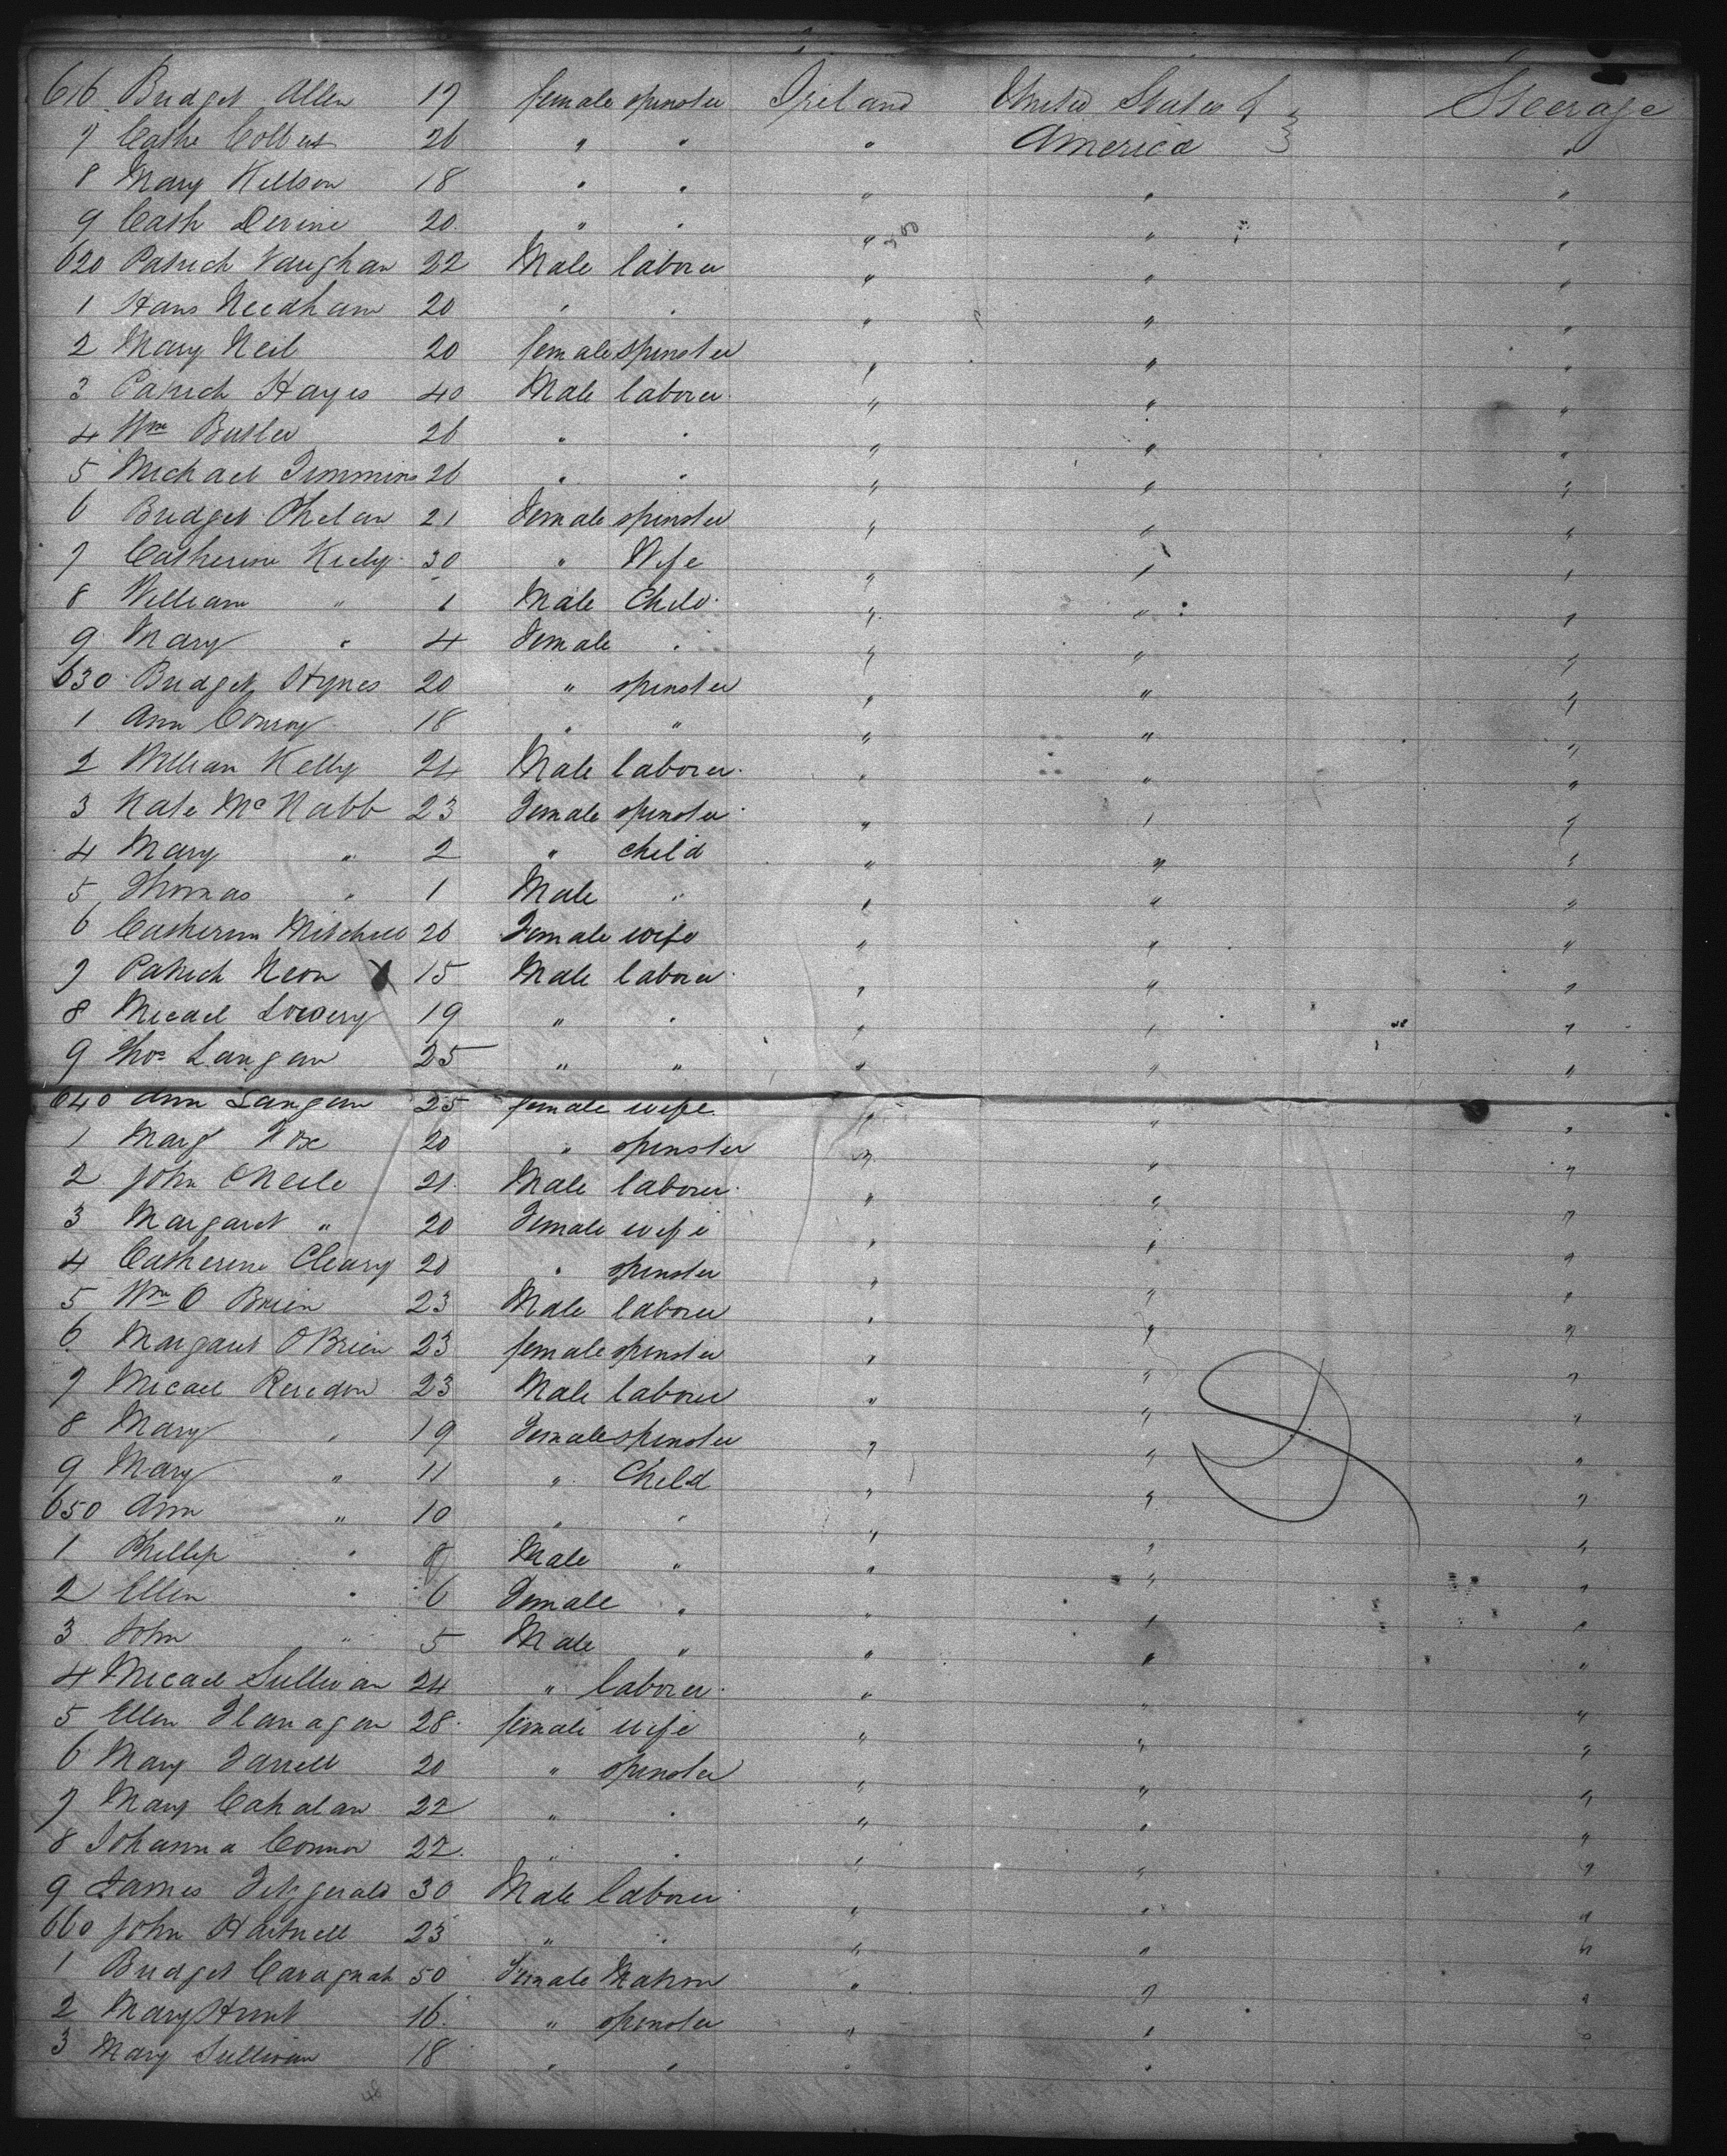 616 Bridget Allen 17 female spinster Ireland United States of Steerage
7 Cathe Colbert 26 " " " America "
8 Mary Kellson 18 " " " " "
9 Cath Devine 20 " " " " "
620 Patrick Vaughan 22 Male laborer " " "
1 Hans Needham 20 " " " " "
2 Mary Neil 20 female spinster " " "
3 Patrick Hayes 40 Male laborer " " "
4 Wm Butler 26 " " " " "
5 Michael Timmins 26 " " " " "
6 Bridget Phelan 21 Female spinster " " "
7 Catherine Kiely 30 " Wife " " "
8 William " 1 Male Child " " "
9 Mary " 4 Female " " " "
630 Bridget Hynes 20 " spinster " " "
1 Ann Conroy 18 " " " " "
2 William Kelly 24 Male laborer " " "
3 Kate McNabb 23 Female spinster " " "
4 Mary " 2 " child " " "
5 Thomas " 1 Male " " " "
6 Catherine Mitchell 26 Female wife " " "
7 Patrick Neon X 15 Male laborer " " "
8 Micael Lowery 19 " " " " "
9 Thos Langan 25 " " " " "
640 Ann Langan 25 female wife " " "
1 Margt Fox 20 " spinster " " "
2 John ONeile 21 Male laborer " " "
3 Margaret " 20 Female wife " " "
4 Catherine Cleary 20 " spinster " " "
5 Wm O Brien 23 Male laborer " " "
6 Margaret OBrien 23 female spinster " " "
7 Micael Reredon 23 Male laborer " " "
8 Mary " 19 Female spinster " " "
9 Mary " 11 " Child " " "
650 Ann " 10 " " " " "
1 Phillip " 8 Male " " " "
2 Ellen " 6 Female " " " "
3 John " 5 Male " " " "
4 Micael Sullivan 24 " laborer " " "
5 Ellen Flanagan 28 female wife " " "
6 Mary Farrell 20 " spinster " " "
7 Mary Cahalan 22 " " " " "
8 Johanna Connor 22 " " " " "
9 James Fitzgerald 30 Male laborer " " "
660 John Hartnell 23 " " " " "
1 Bridget Cavagnah 50 Female Matron " " "
2 Mary Hunt 16 " spinster " " "
3 Mary Sullivan 18 " " " "